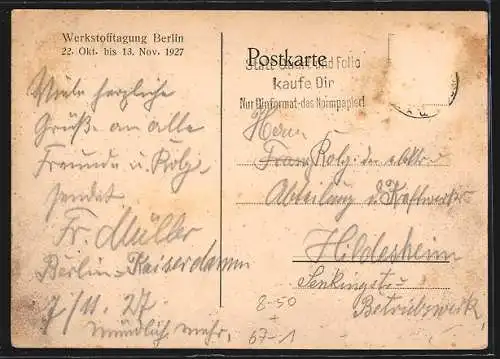 Werkstofftagung Berlin
22. Okt. bis 13. Nov. 1927
Postkarte
Statt Quart und Folio
kaufe Dir
Nur Dinformat - das Normpapier!
Viele herzliche
Grüße an alle
Freunde u. Kolg.
sendet
Fr. Müller
Berlin-Kaiserdamm
7/11. 27.
mündlich mehr.
Herrn
Franz Kolg. der elektr.
Abteilung d. Kraftwerkes
Hildesheim
Senkingstr.
Betriebswerk
8-50
67-1